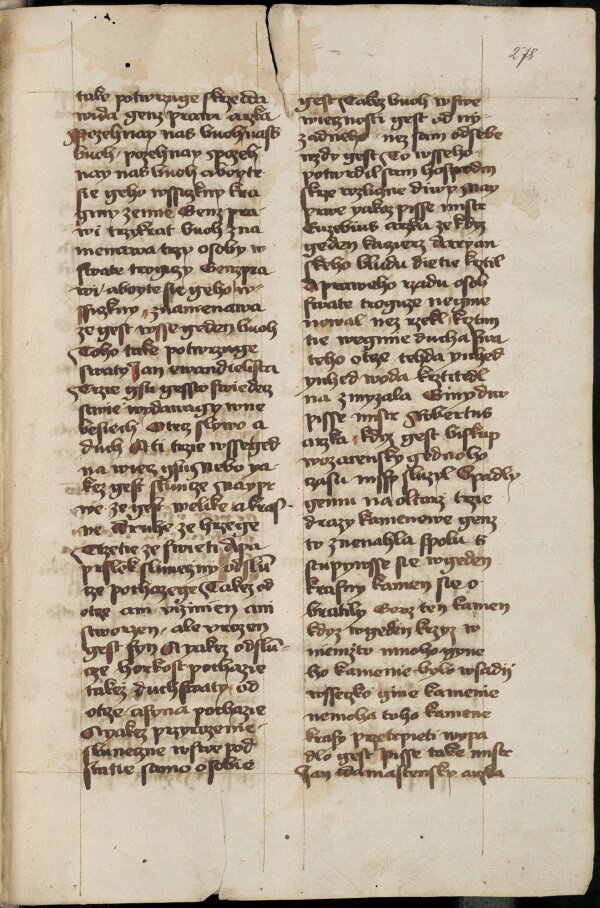 278
take potwrzuge skrze dda
wida genz prawi arzka
Pozehnay nas buoh nass
buoh pozehnay pozeh
nay nas buoh a boyte
sie geho wssiczkny kra
giny zemie Genz pra
wi trzykrat buoh zna
menawa trzy osoby w
swate trogiczy Genz pra
wi a boyte sie geho w
ssiczkny znamenawa
ze gest wsse geden buoh
Toho take potwrzuge
swaty Jan ewandielista
Trzie gsu gessto swiedecz
stwie wydawagy w ne
besiech Otecz slowo a
duch A ti trzie wsse ged
na wiecz gsu Nebo ya
kez gest slunce naypr
we ze gest welike a kras
ne Druhe ze hrzege
Trzetie ze swieti A pa
prslek sluneczny od slu
cze pochazege Takez od
otcze ani uczinien ani
stworzen ale urozen
gest syn A yakez od slu
cze horkost pochazie
takez duch swaty od
otcze a syna pochazie
A yakez przyrozenie
sluneczne w stwe pod
statie samo osobie
gest Takez buoh w stwe
wiecznosti gest od ny
zadneho nez sam od sebe
wzdy gest To wsseho
potwrdil sam hospodin
skrze rozliczne diwy Nay
prwe yakoz pisse mistr
Euzebius arzka ze kdyz
geden kacierz Arryan
skeho bludu dietie krztil
A praweho rzadu osob
swate trogicze negme
nowal nez rzekl krztim
tie we gmie ducha swa
teho otcze tehda ynhed
ynhed woda krztitedl
na zmyzala Giny diw
pisse mistr Robertus
arzka kdyz gest biskup
wozarensky gednoho
czasu mssy sluzil Spadly
gemu na oltarz trzie
drazy kamenowe genz
to znenahla spolu s
stupiwsse sie w geden
krasny kamen sie o
bratily Genz ten kamen
kdyz w geden krzyz w
niemzto mnoho gyne
ho kamenie bylo wsadii
wsseczko gine kamenie
nemoha toho kamene
krasy przetrpieti wypa
dlo gest Pisse take mistr
Jan damastensky arzka